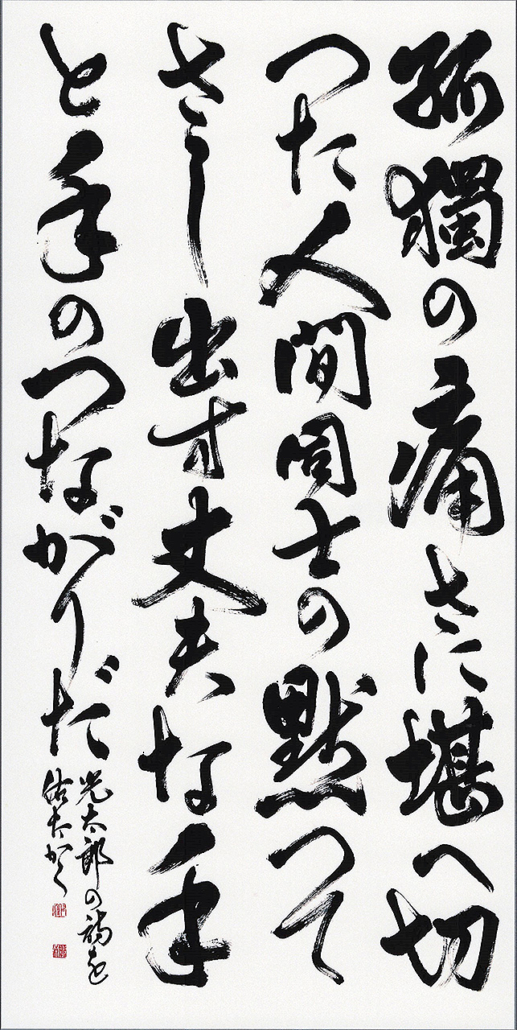 孤獨の痛さに堪へ切
つた人間同士の黙つて
さうし
出す丈夫な手
と手のつながりだ
光太郎の詩を
佑大かく